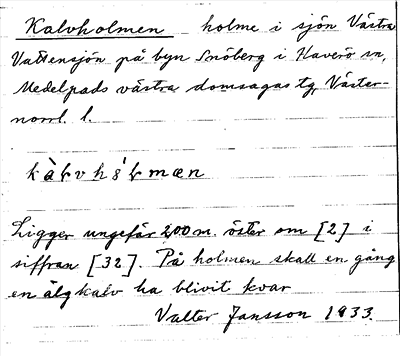 Kalvholmen holme i sjön Västra
Vattensjön på byn Snöberg i Haverö sn,
Medelpads västra domsagas tg, Väster-
norrl. l.
kàɫvhɞ́ɫmæn
Ligger ungefär 200 m. öster om [2] i
siffran [32]. På holmen skall en gång
en älgkalv ha blivit kvar
Valter Jansson 1933.